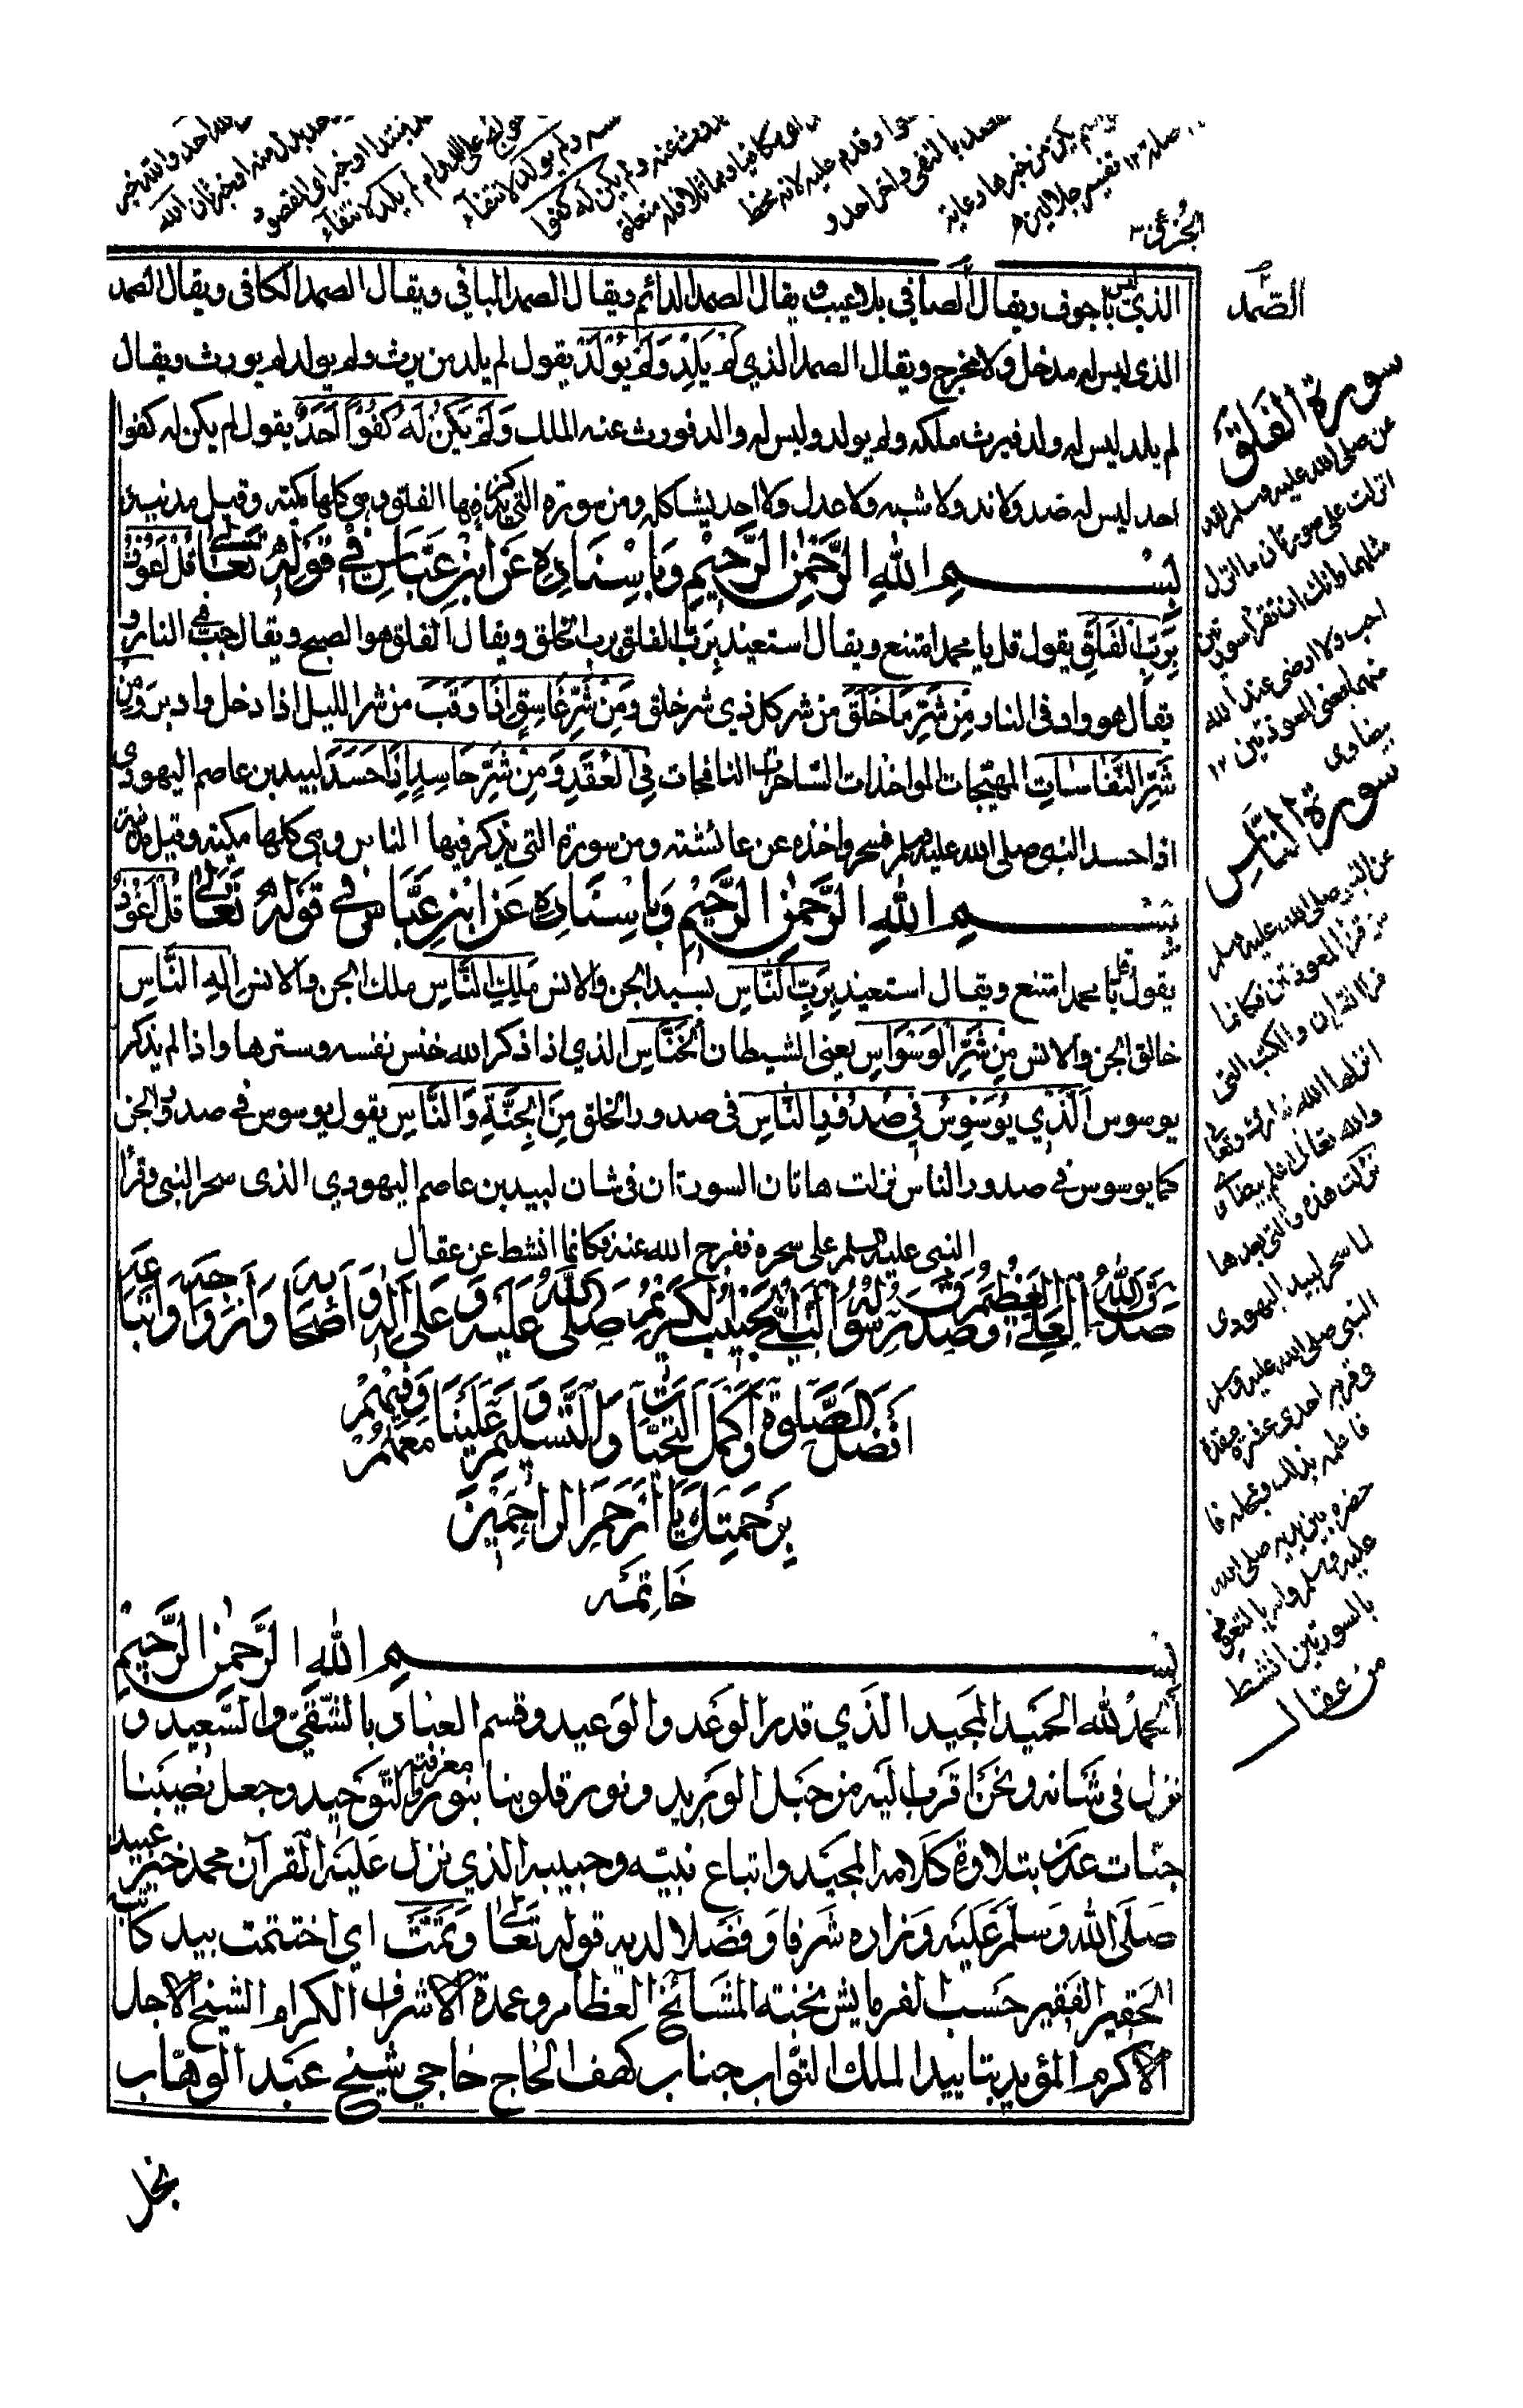 الجزء عم ٣٠
الذي ليس باجوف ويقال الصافي بلا عيب ويقال الصمد الدائم ويقال الصمد الباقي ويقال الصمد الكافى ويقال الصمد
الذى ليس له مدخل ولا مخرج ويقال الصمد الذي لَمْ يَلِدْ وَلَمْ يُوْلَدْ يقول لم يلد من يرث ولم يولد لم يورث ويقال
لم يلد ليس له ولد فيرث ملكه ولم يولد وليس له والد فورث عنه الملك وَلَمْ يَكُنْ لَهٗ كُفُوًا اَحَدٌ يقول لم يكن له كفوا
احد ليس له ضد ولا ند ولا شبه ولا عدل ولا احد يشاكله ومن سورة التي يذكر فيها الفلق وهي كلها مكية وقيل مدنية
بِسْمِ اللهِ الرَّحْمٰنِ الرَّحِيْمِ وَبِاِسْنَادِهٖ عَنْ ابْنِ عَبَّاسٍ فِي قَوْلِهٖ تَعَالٰى قُلْ اَعُوْذُ
بِرَبِّ الْفَلَقِ يقول قل يا محمد امتنع ويقال استعيذ بِرَبِّ الفلق برب الخلق ويقال الفلق هو الصبح ويقال جب فى النار و
يقال هو واد فى النار مِنْ شَرِّ مَا خَلَقَ من شر كل ذي شر خلق وَمِنْ شَرِّ غَاسِقٍ اِذَا وَقَبَ من شر الليل اذا دخل وادبر وَمِنْ
شَرِّ النَّفّٰثٰتِ المهيجات المواخذات الساحرات النافخات فِي الْعُقَدِ وَمِنْ شَرِّ حَاسِدٍ اِذَا حَسَدَ لبيد بن عاصم اليهودي
اذا حسد النبى صلى الله عليه وسلم فسحره واخذه عن عائشة ومن سورة التى يذكر فيها الناس وهي كلها مكية وقيل مدنية
بِسْمِ اللهِ الرَّحْمٰنِ الرَّحِيْمِ وَبِاِسْنَادِهٖ عَنْ ابْنِ عَبَّاسٍ في قَوْلِهٖ تَعَالٰى قُلْ اَعُوْذُ
يقول قل يا محمد امتنع ويقال استعيذ بِرَبِّ النَّاسِ بسيد الجن والانس مَلِكِ النَّاسِ ملك الجن والانس اِلٰهِ النَّاسِ
خالق الجن والانس مِنْ شَرِّ الْوَسْوَاسِ يعنى الشيطان الْخَنَّاسِ الذي اذا ذكر الله خنس نفسه وسترها واذا لم يذكر
يوسوس الَّذِي يُوَسْوِسُ فِي صُدُوْرِ النَّاسِ فى صدور الخلق مِنَ الْجِنَّةِ وَالنَّاسِ يقول يوسوس فى صدور الجن
كما يوسوس فى صدور الناس نزلت هاتان السورتان فى شان لبيد بن عاصم اليهودي الذى سحر النبى فقرأ
النبى عليه السلم على سحره ففرج الله عنه فكانما انشط عن عقال
صَدَقَ اللهُ الْعَلِيُّ الْعَظِيْمُ وَصَدَقَ رَسُوْلُهُ النَّبِيُّ الْحَبِيْبُ الْكَرِيْمُ صَلَّى اللهُ عَلَيْهِ وَعَلٰى اٰلِهٖ وَاَصْحَابِهٖ وَاَزْوَاجِهٖ وَاَتْبَاعِهٖ
اَفْضَلَ الصَّلٰوةِ وَاَكْمَلَ التَّحِيَّاتِ وَالتَّسْلِيْمِ وَعَلَيْنَا وَفِيْهِمْ مَعَهُمْ
بِرَحْمَتِكَ يَا اَرْحَمَ الرَّاحِمِيْنَ
خَاتِمَه
بِسْمِ اللهِ الرَّحْمٰنِ الرَّحِيْمِ
اَلْحَمْدُ لله الحميد المجيد الذي قدر الوعد والوعيد وقسم العباد بالشقي والسعيد و
نزل فى شانه ونحن اقرب اليه من حبل الوريد ونور قلوبنا بنور معرفته والتوحيد وجعل نصيبنا
جنات عدن بتلاوة كلامه المجيد واتباع نبيه وحبيبه الذي نزل عليه القرآن محمد خير عبيده
صلى الله وسلم عليه وزاده شرفا وفضلا لديه قوله تعالى وتمت اي اختتمت بيد كاتب
الحقير الفقير حسب الفرمايش نخبة المشائخ العظام وعمدة الاشراف الكرام الشيخ الاجل
الاكرم المؤيد بتاييد الملك التواب جناب كهف الحاج حاجي شيخ عبد الوهاب
نجل
الصمد
سورة الفلق
عن صلى الله عليه وسلم لقد
انزلت على سورتان ما انزل
مثلهما وانك ان تقرأ سورتين
احب ولا ارضى عند الله
منهما يعنى المعوذتين ١٢
بيضاوى
سورة الناس
عن النبى صلى الله عليه وسلم
من قرأ المعوذتين فكانما
قرأ القران والكتب التى
انزلها الله تبارك وتعالى
والله تعالى اعلم بيضاوى
نزلت هذه والتى بعدها
لما سحر لبيد اليهودى
النبى صلى الله عليه وسلم
فى وتر به احدى عشرة عقدة
فاعلمه بذلك وبمحله فا
حضر بين يديه صلى الله
عليه وسلم وامر بالتعوذ
بالسورتين انشط
من عقال